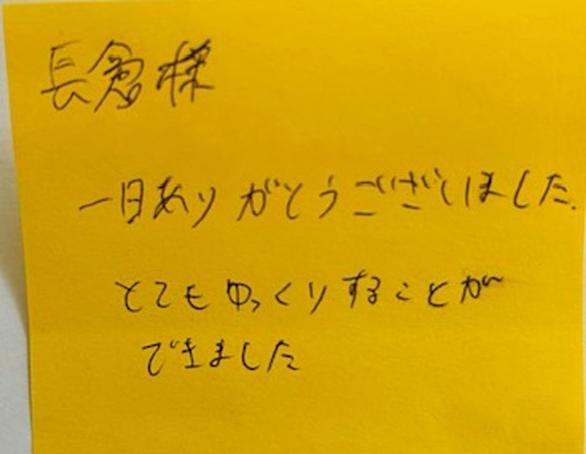 長倉様
一日ありがとうございました.
とてもゆっくりすることが
できました